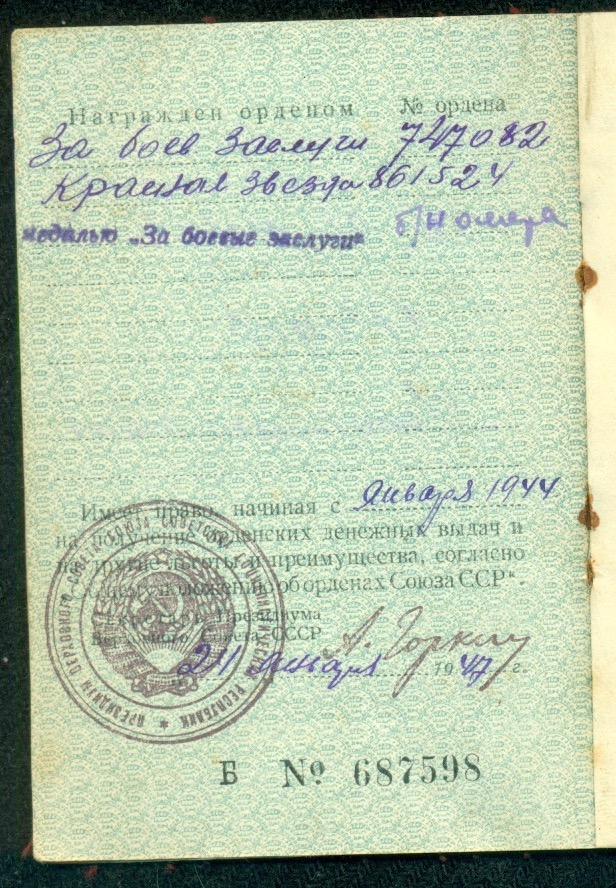 Награжден орденом № ордена
За боев заслуги 747082
Красная звезда 861524
медалью „За боевые заслуги“ б/номера
Имеет право, начиная с января 1944
на получение орденских денежных выдач и
на другие льготы и преимущества, согласно
„Общему положению об орденах Союза ССР“.
Секретарь Президиума
Верховного Совета СССР А. Горкин
24 января 1947 г.
ПРЕЗИДИУМ ВЕРХОВНОГО СОВЕТА СОЮЗА СОВЕТСКИХ РЕСПУБЛИК
Б № 687598